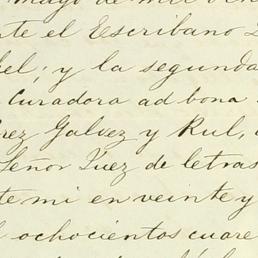 mayo de mil och
te el Escribano
bel; y la segunda
Curadora ad bona
rez Galvez y Rul,
Señor Juez de letras
te mi en veinte y
ochocientos cuare